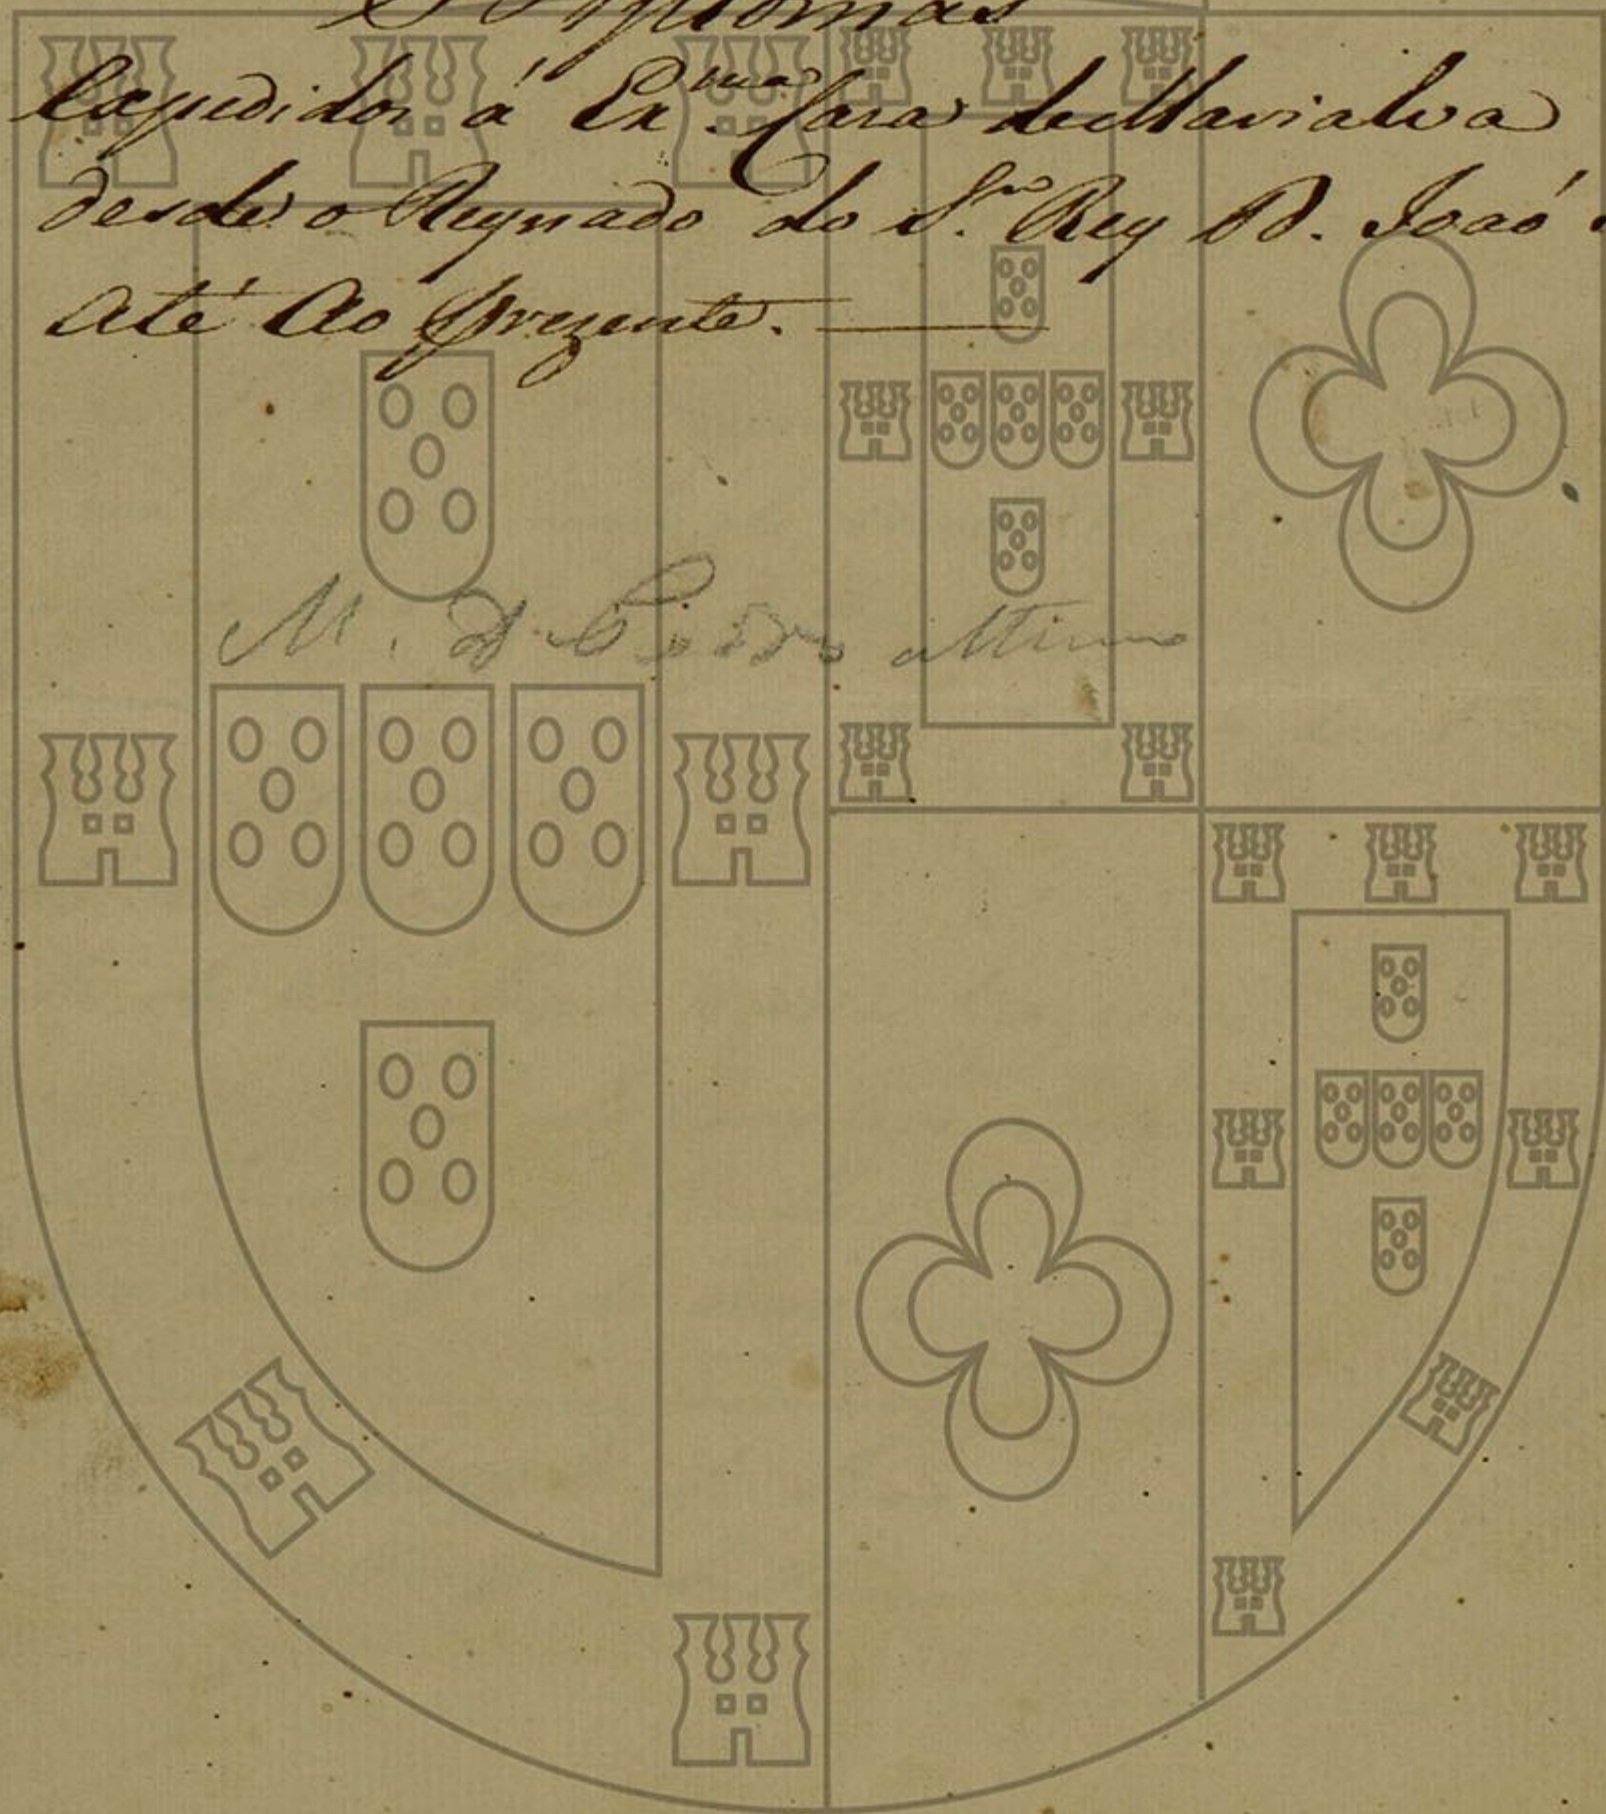 Diplomas
Expedidos á Ex.ma Casa de Marialva
desde o Reynado do S.r Rey D. Joaõ
até ao prezente.
M. D.